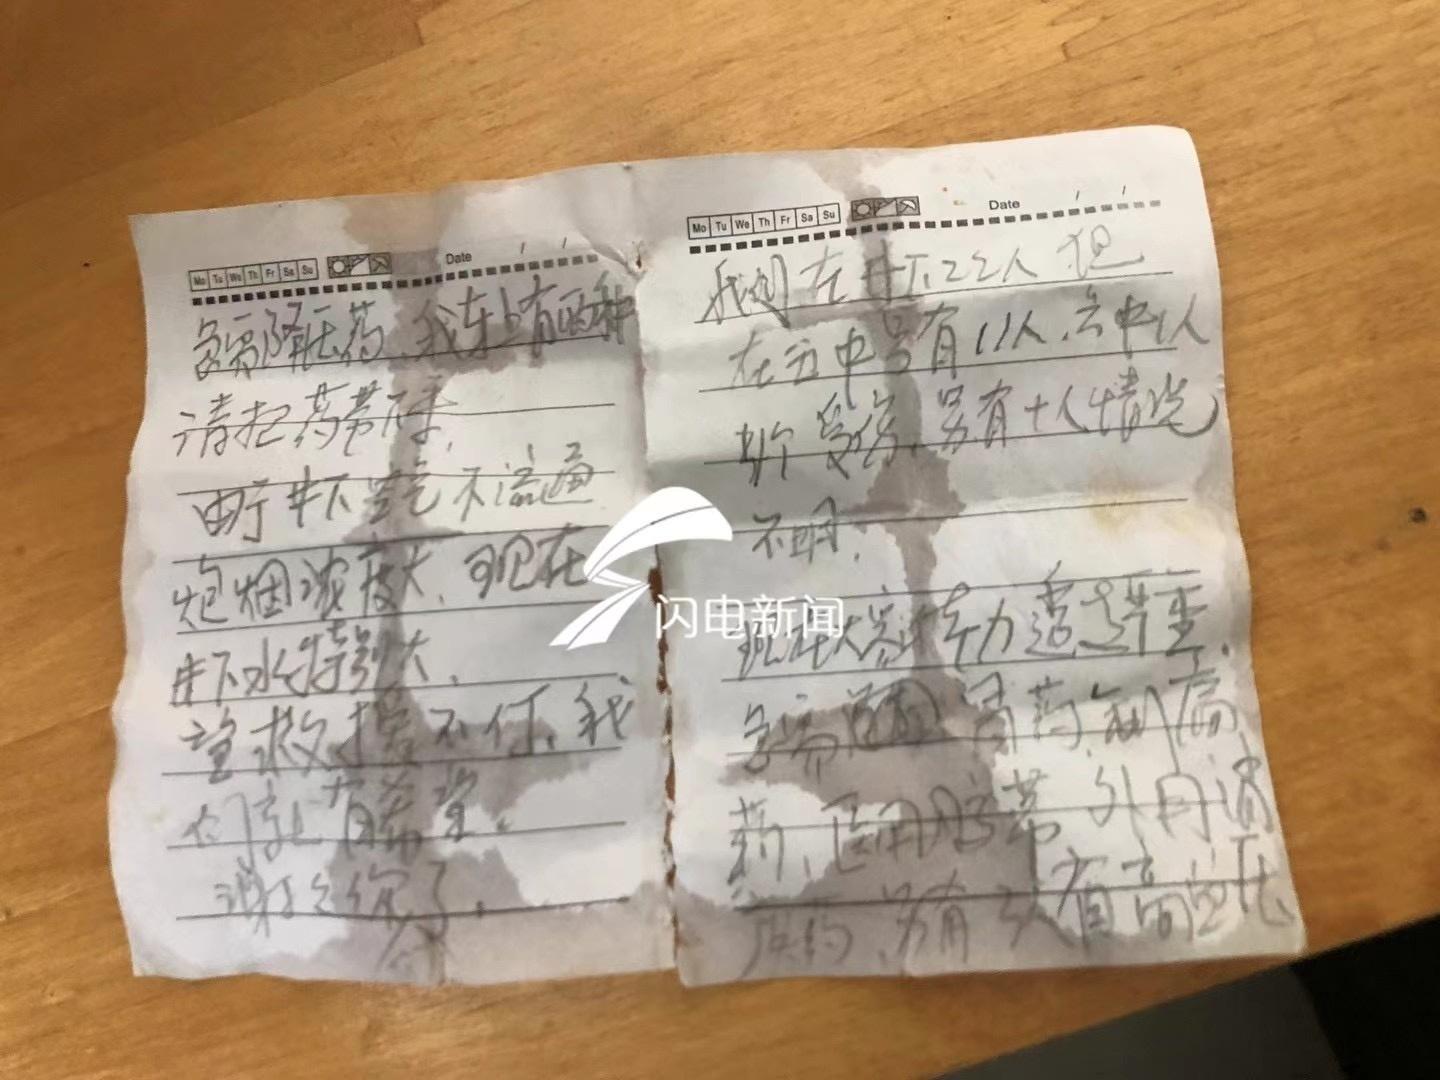 Mo Tu We Th Fr Sa Su
Date
我们在井下22人 但
在五中 有11人, 六中1人
受伤,另有十人情况
不明,
现在大家体力透支严重,
急需 胃药,制痛
药,医用胶带,外用消
炎药,另有 人有高血压
Mo Tu We Th Fr Sa Su
Date
急需降压药,我车上有两种
请把药带下来,
由于井下空气不流通
炮烟浓度大,现在
井下水特别大,
望救援不停,我
们就有希望。
谢谢 了,
闪电新闻